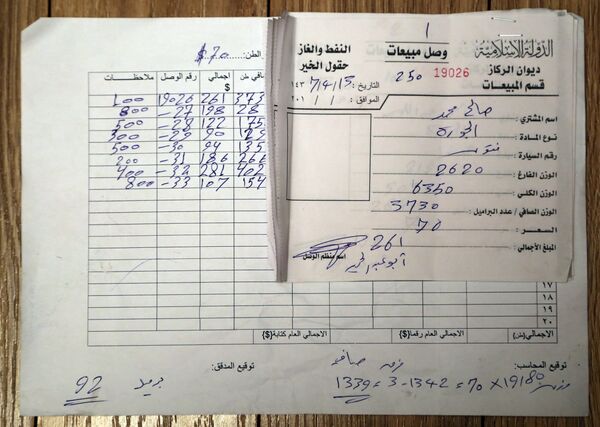 1
الدولة الاسلامية
ديوان الركاز
قسم المبيعات
وصل مبيعات
250 19026
النفط والغاز
حقول الخير
التاريخ : 7/4/15 ١٤٣
الموافق : / / ٢٠١
اسم المشتري : صالح محمد
نوع المادة :
رقم السيارة :
الوزن الفارغ : 2620
الوزن الكلي : 6350
الوزن الصافي / عدد البراميل : 3730
السعر : 70
المبلغ الأجمالي : 261
اسم منظم الوصل
الطن: $70
صافي طن اجمالي $ رقم الوصل ملاحظات
373 261 19026 100
28 198 -27 800
175 122 -28 500
129 90 -29 300
135 94 -30 500
266 186 -31 200
402 281 -32 400
154 107 -33 800
17
18
19
20
الاجمالي (طن) الاجمالي العام رقما{$} الاجمالي العام كتابة{$}
توقيع المحاسب: توقيع المدقق:
1339 = 3 - 1342 = 70 × 19180
92